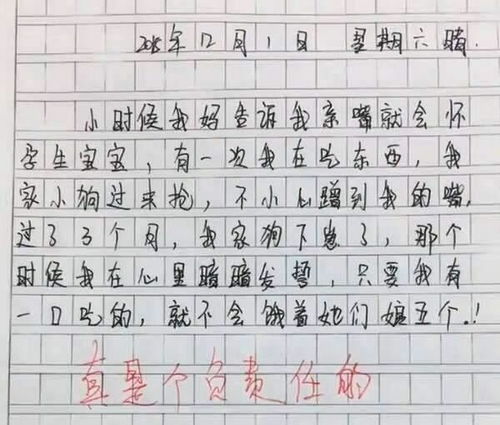 2018年12月1日 星期六晴.
小时候我妈告诉我亲嘴就会怀
孕生宝宝，有一次我在吃东西，我
家小狗过来抢，不小心蹭到我的嘴.
过了3个月，我家狗下崽了，那个
时候我在心里暗暗发誓，只要我有
一口吃的，就不会饿着她们娘五个.!
真是个负责任的